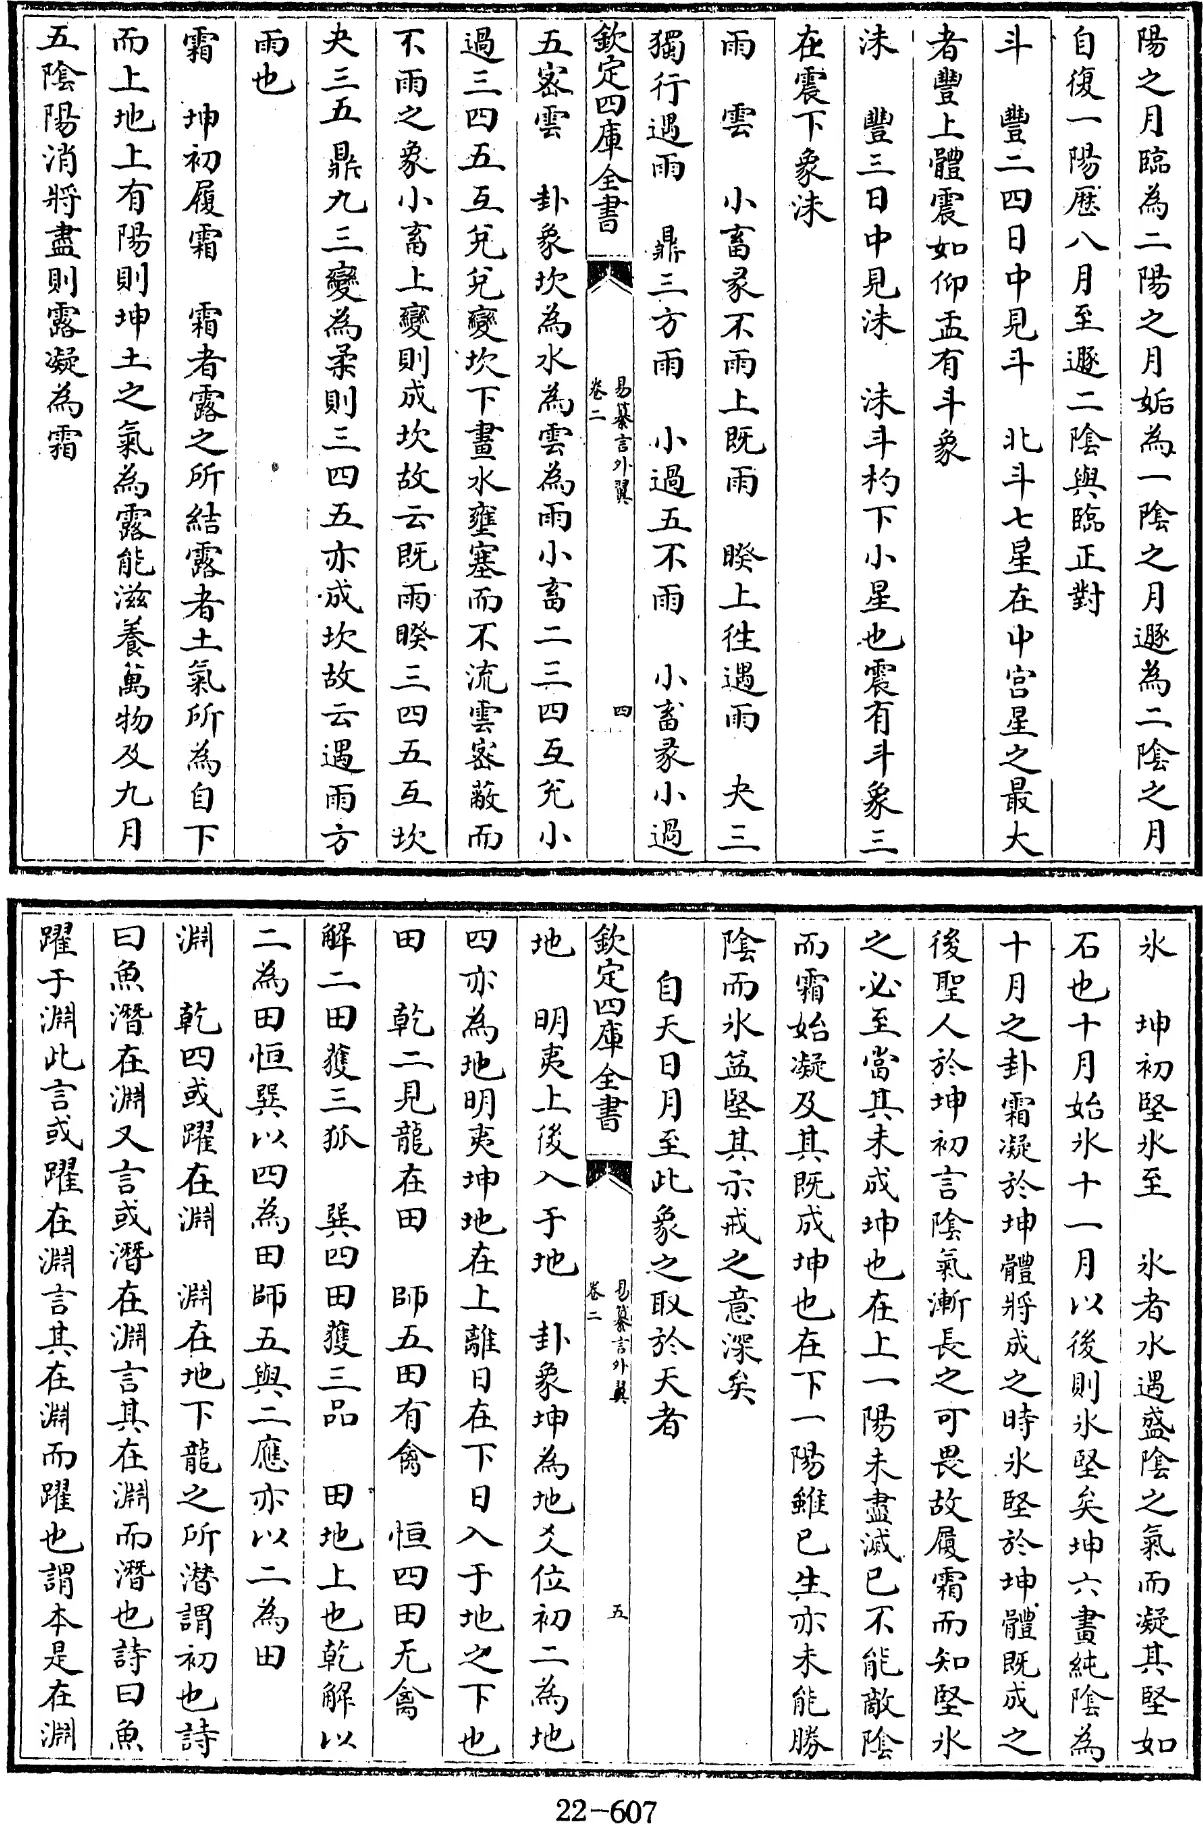 陽之月臨為二陽之月姤為一陰之月遯為二陰之月
自復一陽歷八月至遯二陰與臨正對
斗　豐二四日中見斗　北斗七星在中宮星之最大
者豐上體震如仰盂有斗象
沬　豐三日中見沬　沬斗杓下小星也震有斗象三
在震下象沬
雨　雲　小畜彖不雨上既雨　睽上徃遇雨　夬三
獨行遇雨　鼎三方雨　小過五不雨　小畜彖小過
欽定四庫全書　易纂言外翼　卷二　四
五密雲　卦象坎為水為雲為雨小畜二三四互兊小
過三四五互兊兊變坎下畫水壅塞而不流雲密蔽而
不雨之象小畜上變則成坎故云既雨睽三四五互坎
夬三五鼎九三變為柔則三四五亦成坎故云遇雨方
雨也
霜　坤初履霜　霜者露之所結露者土氣所為自下
而上地上有陽則坤土之氣為露能滋養萬物及九月
五陰陽消將盡則露凝為霜
氷　坤初堅氷至　氷者水遇盛陰之氣而凝其堅如
石也十月始氷十一月以後則氷堅矣坤六畫純陰為
十月之卦霜凝於坤體將成之時氷堅於坤體既成之
後聖人於坤初言陰氣漸長之可畏故履霜而知堅氷
之必至當其未成坤也在上一陽未盡滅已不能敵陰
而霜始凝及其既成坤也在下一陽雖已生亦未能勝
陰而氷益堅其示戒之意深矣
自天日月至此象之取於天者
欽定四庫全書　易纂言外翼　卷二　五
地　明夷上後入于地　卦象坤為地爻位初二為地
四亦為地明夷坤地在上離日在下日入于地之下也
田　乾二見龍在田　師五田有禽　恒四田无禽
解二田獲三狐　巽四田獲三品　田地上也乾解以
二為田恒巽以四為田師五與二應亦以二為田
淵　乾四或躍在淵　淵在地下龍之所潛謂初也詩
曰魚潛在淵又言或潛在淵言其在淵而潛也詩曰魚
躍于淵此言或躍在淵言其在淵而躍也謂本是在淵
22-607